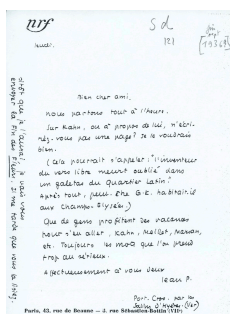 nrf
Sd
121
[1936?]
jeudi.
Bien cher ami,
nous partons tout à l'heure.
Sur Kahn, ou à propos de lui, n'écri-
rez-vous pas une page? Je le voudrais
bien.
(Cela pourrait s'appeler: "l'inventeur
du vers libre meurt oublié dans
un galetas du quartier Latin".
Après tout, peut-être G.K. habitait-il
aux Champs-Elysées.)
Que de gens profitent des vacances
pour s'en aller, Kahn, Mellet, Masson,
etc. Toujours les mots que l'on prend
trop au sérieux.
Affectueusement à vous deux
Jean P.
Port-Cros, par les
Salins d'Hyères. (Var)
dès que je l'aurai, je vais vous
envoyer la fin des Fleurs. Il me tarde que vous la lisiez.
Paris, 43, rue de Beaune — 5, rue Sébastien-Bottin (VIIe)